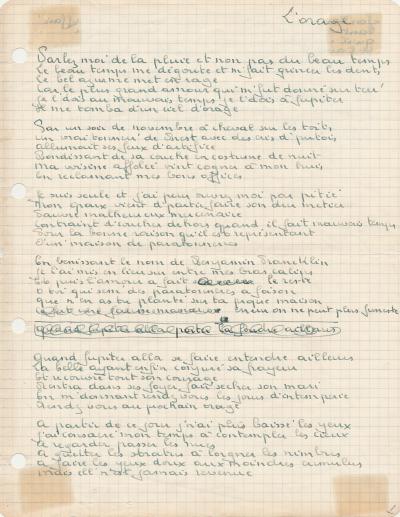 L'orage
Parlez moi de la pluie et non pas du beau temps
Le beau temps me dégoute et m'fait grincer les dents
Le bel azur me met en rage
Car le plus grand amour qui m'fut donné sur terr'
Je l'dois au mauvais temps je l'dois à Jupiter
Il me tomba d'un ciel d'orage
Par un soir de novembre à cheval sur les toits
Un vrai tonnerr' de Brest avec des cris d'putois
Allumait ses feux d'artifice
Bondissant de sa couche en costume de nuit
Ma voisine affolée vint cogner à mon huis
En réclamant mes bons offices
Je suis seule et j'ai peur ouvrez moi par pitié
Mon époux vient d'partir faire son dur métier
Pauvre malheureux mercenaire
Contraint d'coucher dehors quand il fait mauvais temps
Pour la bonne raison qu'il est représentant
D'un' maison de paratonnerres
En bénissant le nom de Benjamin Franklin
Je l'ai mis' en lieu sûr entre mes bras calins
Et puis l'amour a fait le reste
Toi qui sèm' des paratonnerres à foison
que n'en as tu planté sur ta propre maison
erreur on ne peut plus funeste
quand Jupiter alla porter la foudre ailleurs
Quand Jupiter alla se faire entendre ailleurs
La belle ayant enfin conjuré sa frayeur
Et recouvré tout son courage
Rentra dans ses foyers fair' sécher son mari
En m'donnant rendez vous les jours d'intempérie
Rendez vous au prochain orage
A partir de ce jour j'n'ai plus baissé les yeux
J'ai consacré mon temps à contempler les cieux
A regarder passer les nues
A guetter les stratus à lorgner les nimbus
A faire les yeux doux aux moindres cumulus
Mais ell' n'est jamais revenue